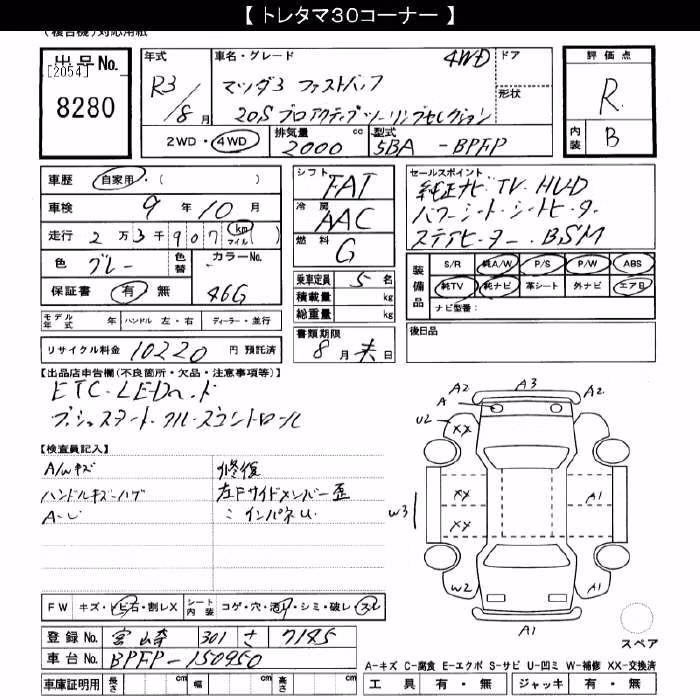 【 トレタマ30コーナー 】
(複合機)対応用紙
出品No.
[2054]
8280
年式
R3/8月
車名・グレード
4WD
ドア
形状
マツダ3 ファストバック
20S プロアクティブツーリングセレクション
2WD・4WD
排気量
2000
cc
型式
5BA-BPFP
評価点
R
内装
B
車歴 自家用・( )
車検 9年10月
走行 2万3千907 km マイル ( )
色 グレー
色替
カラーNo.
46G
保証書 有 無
モデル年式 年 ハンドル 左・右 ディーラー・並行
リサイクル料金 10220 円 預託済
シフト FAT
冷房 AAC
燃料 G
乗車定員 5名
積載量 kg
総重量 kg
書類期限
8月末日
セールスポイント
純正ナビ TV・HUD
パワーシート・シートヒーター
ステアヒーター・BSM
装備品
S/R 純A/W P/S P/W ABS
純TV 純ナビ 革シート 外ナビ エアB
ナビ型番:
後日品
【出品店申告欄(不良箇所・欠品・注意事項等)】
ETC・LEDヘッド
プッシュスタート・クルーズコントロール
【検査員記入】
A/Wキズ
ハンドルキズ・ハゲ
修復
左Fサイドメンバー歪
〃 インパネU
A2 A3 A2
A
U2 XX
XX
XX
W3
A1
W2
A1
A1
スペア
FW キズ・トビ石・割レX
シート内装 コゲ・穴・汚レ・シミ・破レ・スレ
登録No. 301 さ 7185
車台No. BPFP-150950
車庫証明用 長さ cm 幅 cm 高さ cm
A-キズ C-腐食 E-エクボ S-サビ U-凹ミ W-補修 XX-交換済
工具 有・無 ジャッキ 有・無